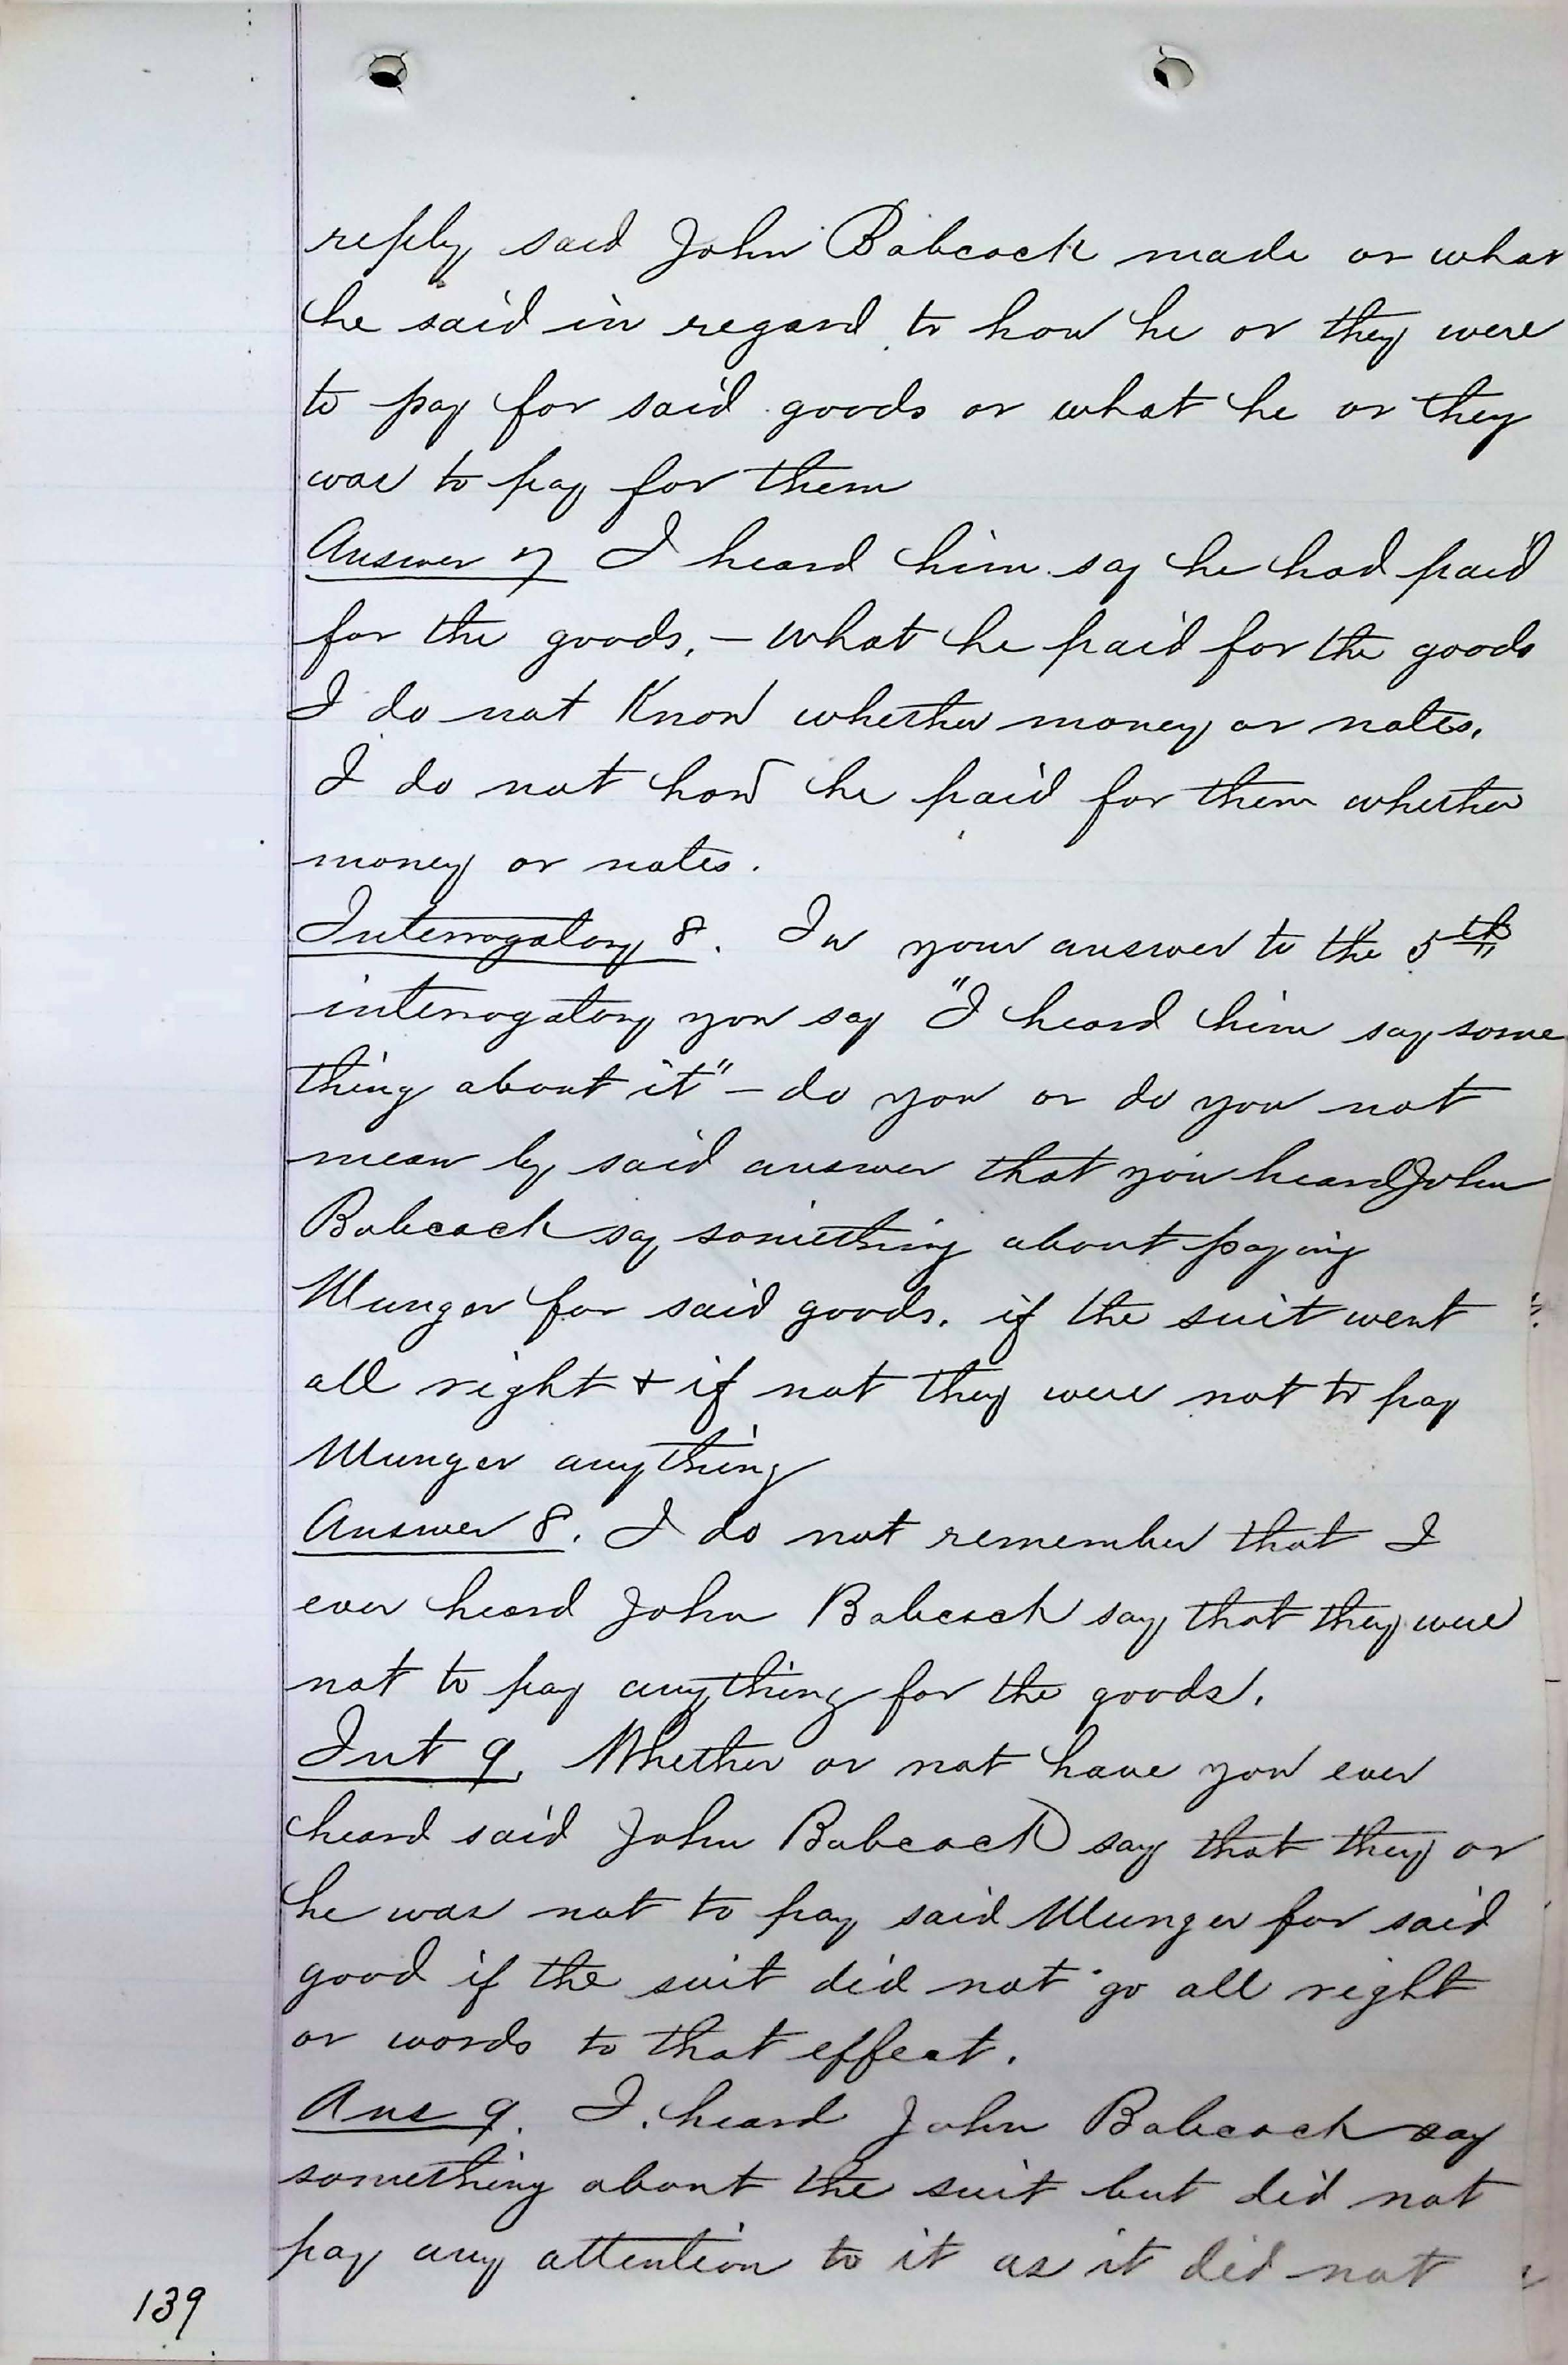 reply said John Babcock made or what
he said in regard to how he or they were
to pay for said goods or what he or they
was to pay for them
Answer 7 I heard him say he had paid
for the goods, – what he paid for the goods
I do not Know whether money or notes.
I do not how he paid for them whether
money or notes.
Interrogatory 8. In your answer to the 5th
interrogatory you say "I heard him say some
thing about it" – do you or do you not
mean by said answer that you heard John
Babcock say something about paying
Munger for said goods. if the suit went
all right & if not they were not to pay
Munger anything
Answer 8. I do not remember that I
ever heard John Babcock say that they were
not to pay anything for the goods.
Int 9. Whether or not have you ever
heard said John Babcock say that they or
he was not to pay said Munger for said
good if the suit did not go all right
or words to that effect.
Ans 9. I heard John Babcock say
something about the suit but did not
pay any attention to it as it did not
139